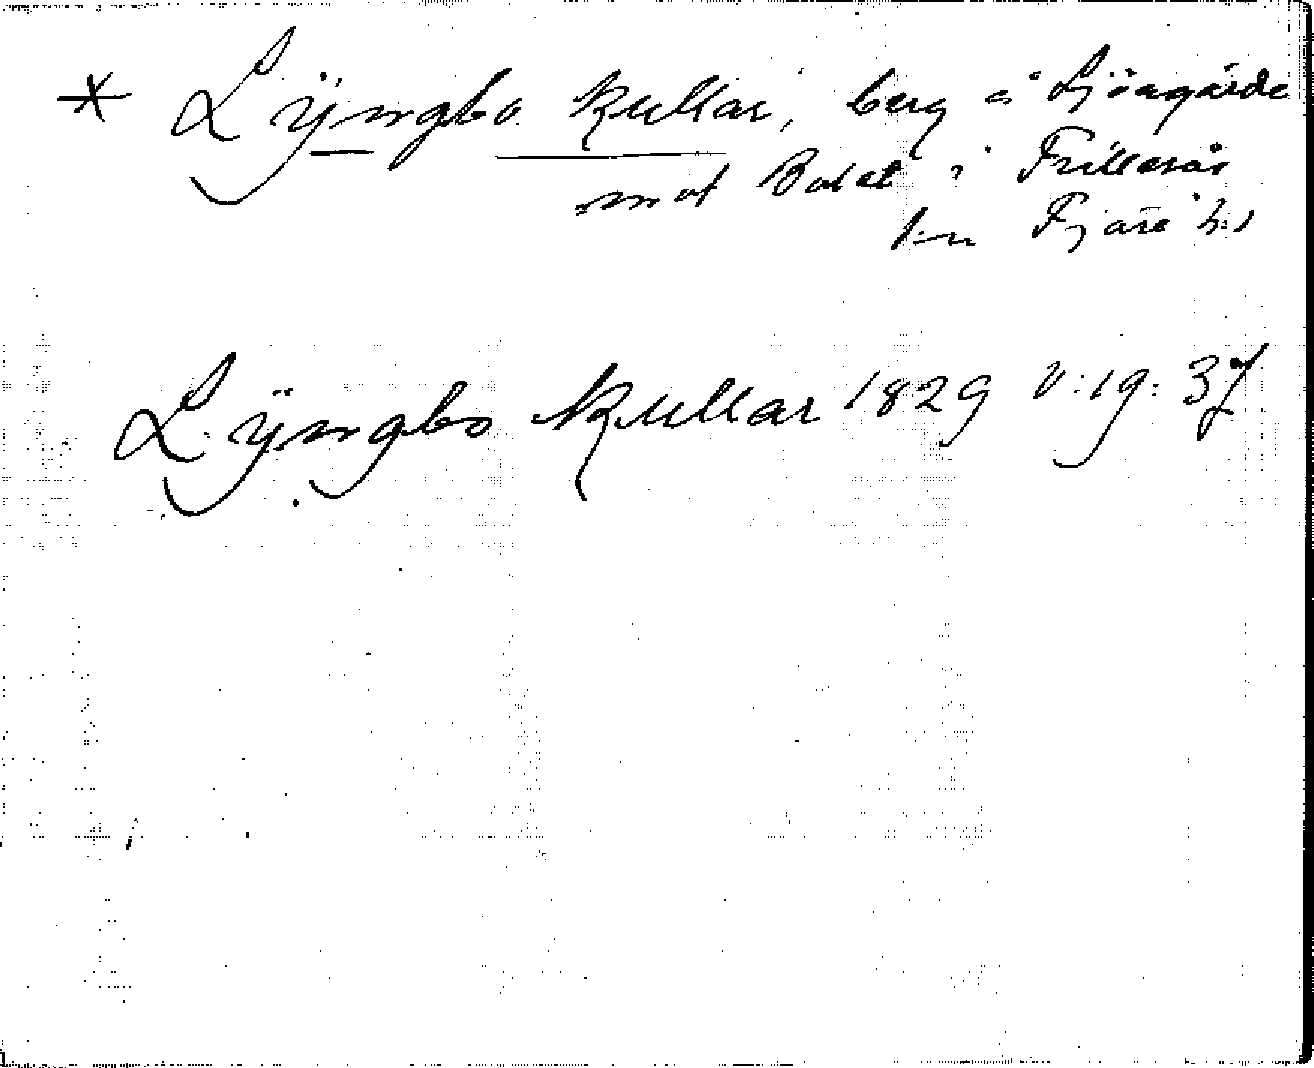 * Lÿngbo Kullar, berg å Sjöagärde
mot Bolet i Frillesås
s:n Fjäre h:d
Lÿngbo Kullar 1829 V:19:37